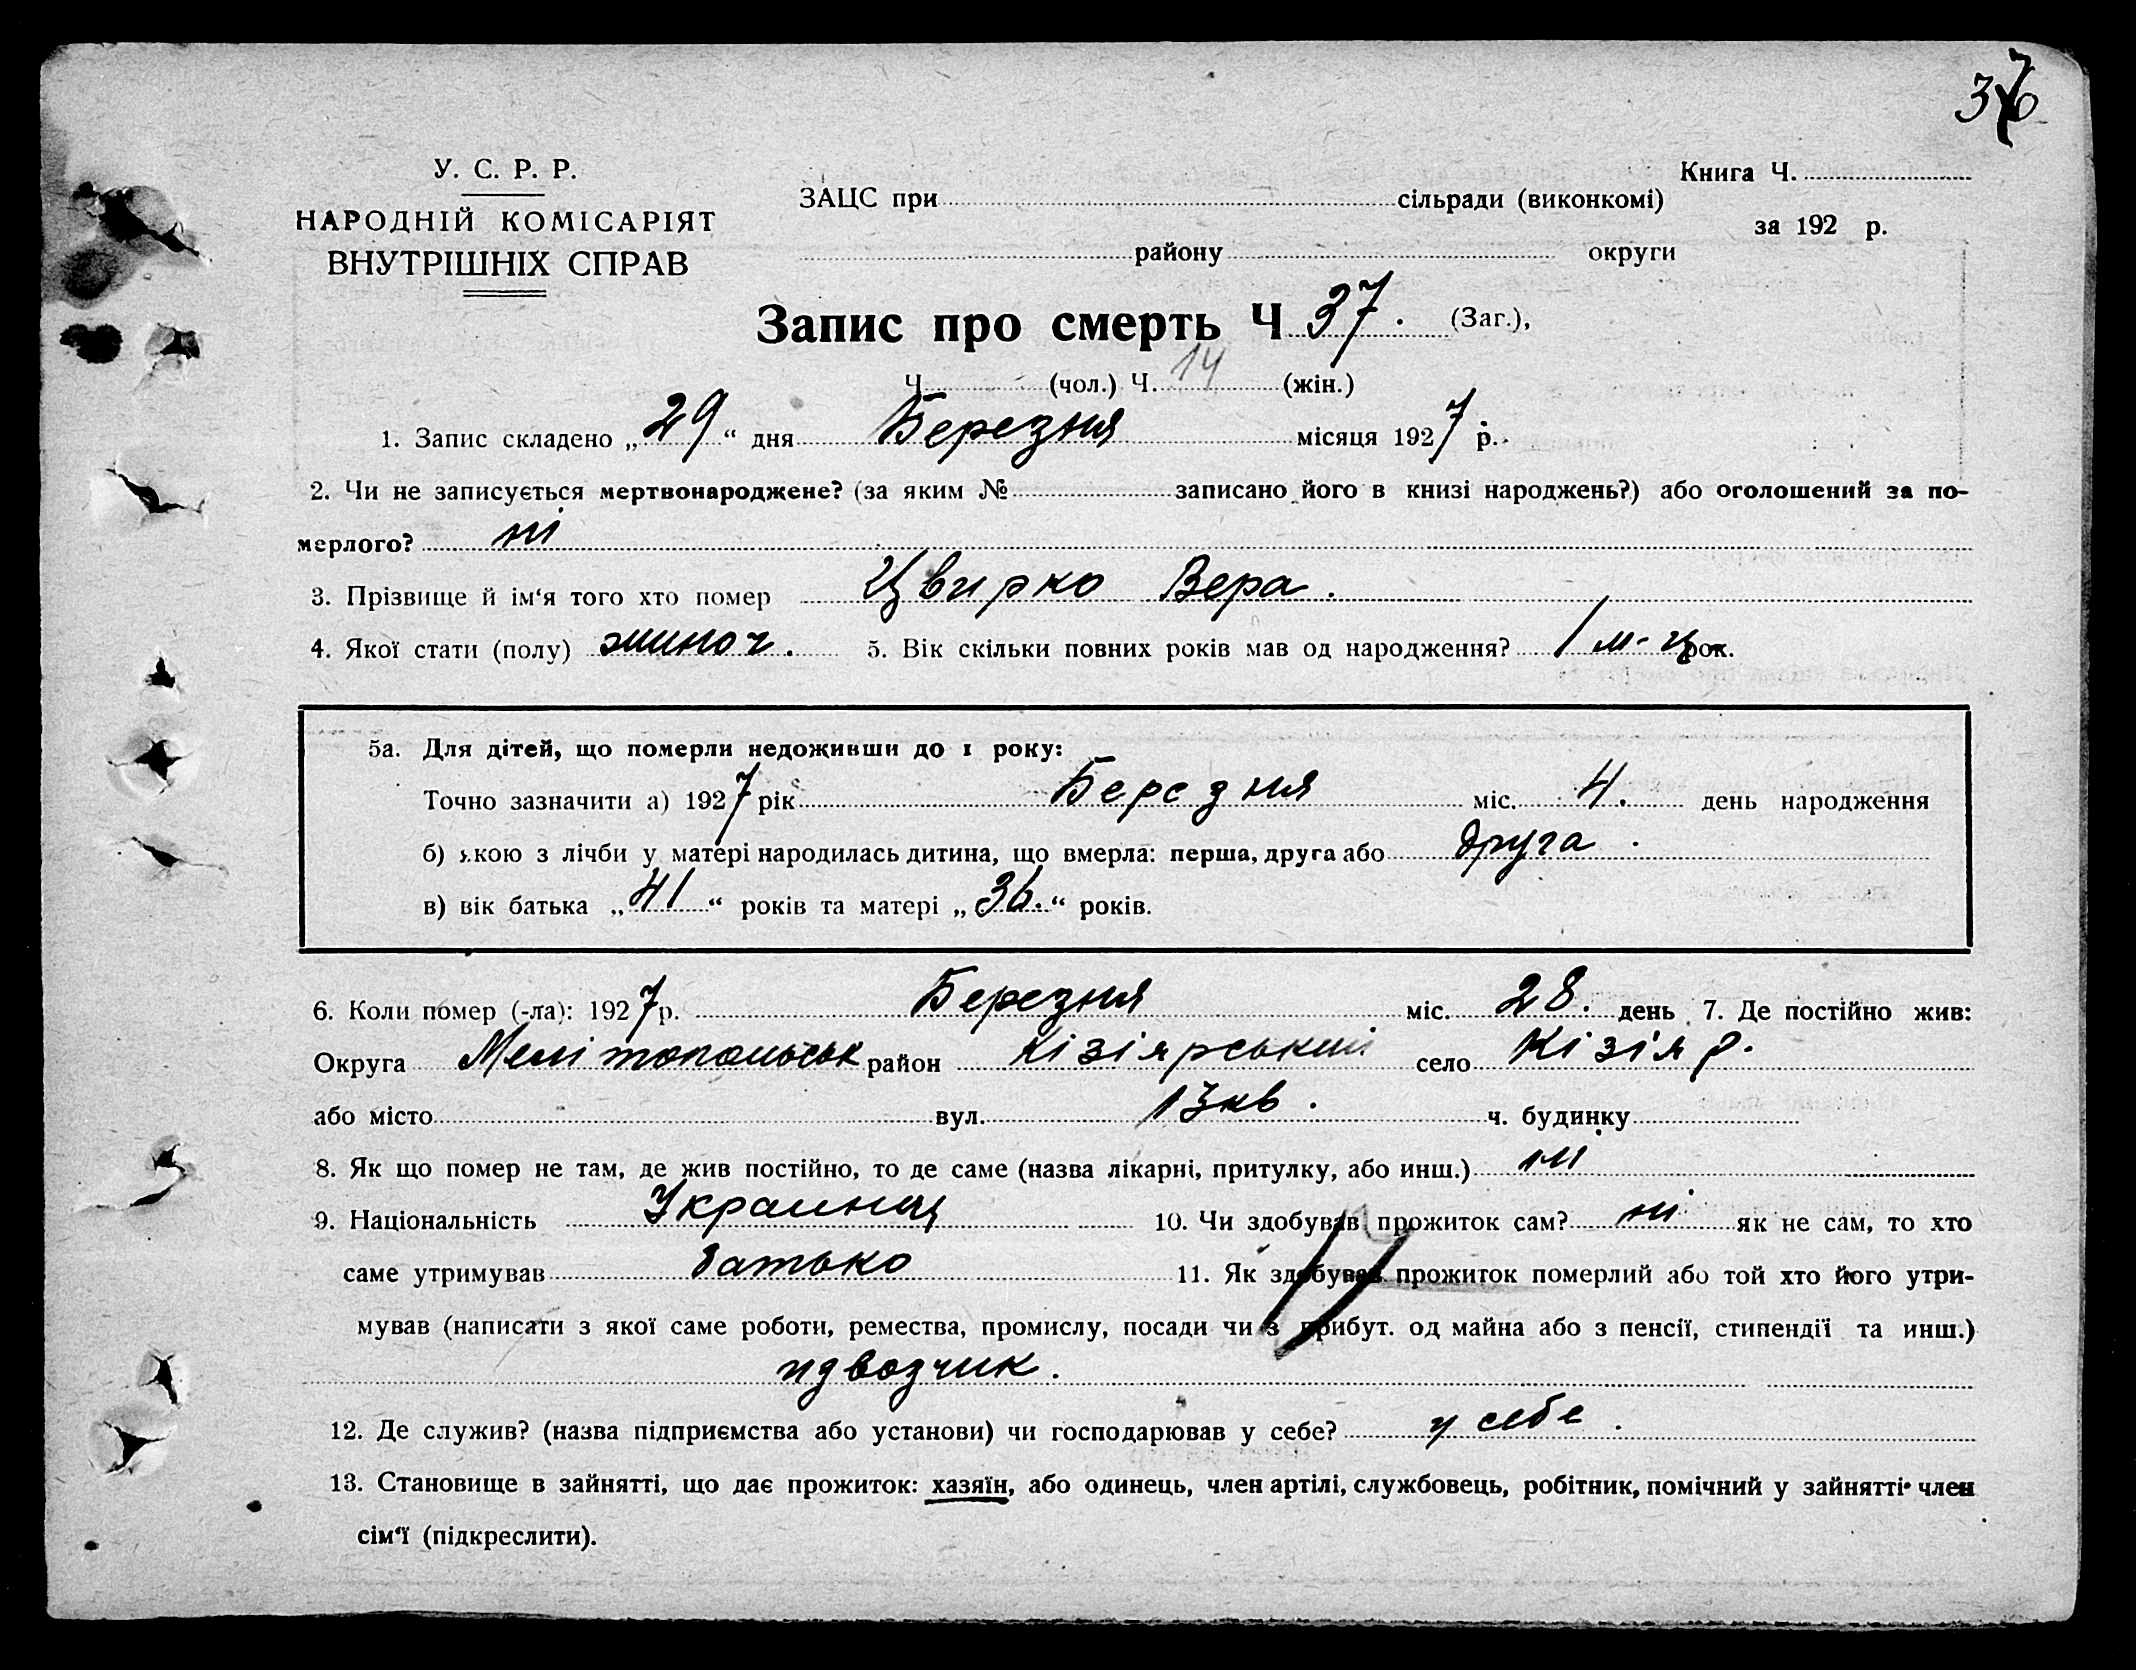 37
У. С. Р. Р.
НАРОДНІЙ КОМІСАРІЯТ
ВНУТРІШНІХ СПРАВ
ЗАЦС при сільради (виконкомі)
району округи
Книга Ч.
за 192 р.
Запис про смерть Ч 37. (Заг.),
Ч. (чол.) Ч. 14 (жін.)
1. Запис складено „ 29 “ дня Березня місяця 1927 р.
2. Чи не записується мертвонароджене? (за яким № записано його в книзі народжень?) або оголошений за по-
мерлого? ні
3. Прізвище й ім‘я того хто помер Цвирко Вера.
4. Якої стати (полу) жиноч. 5. Вік скільки повних років мав од народження? 1 м-ц рок.
5а. Для дітей, що померли недоживши до 1 року:
Точно зазначити а) 1927 рік Березня міс. 4. день народження
б) якою з лічби у матері народилась дитина, що вмерла: перша, друга або друга.
в) вік батька „ 41 “ років та матері „ 36. “ років.
6. Коли помер (-ла): 1927 р. Березня міс. 28. день 7. Де постійно жив:
Округа Мелітопольськ район Кізіярський село Кізіяр.
або місто вул. 13 кв. ч. будинку
8. Як що помер не там, де жив постійно, то де саме (назва лікарні, притулку, або инш.) ні
9. Національність Украинец 10. Чи здобував прожиток сам? ні як не сам, то хто
саме утримував батько 11. Як здобував прожиток померлий або той хто його утри-
мував (написати з якої саме роботи, ремества, промислу, посади чи з прибут. од майна або з пенсії, стипендії та инш.)
ідвозчик.
12. Де служив? (назва підприємства або установи) чи господарював у себе? у себе.
13. Становище в зайнятті, що дає прожиток: хазяїн, або одинець, член артілі, службовець, робітник, помічний у зайнятті член
сім‘ї (підкреслити).